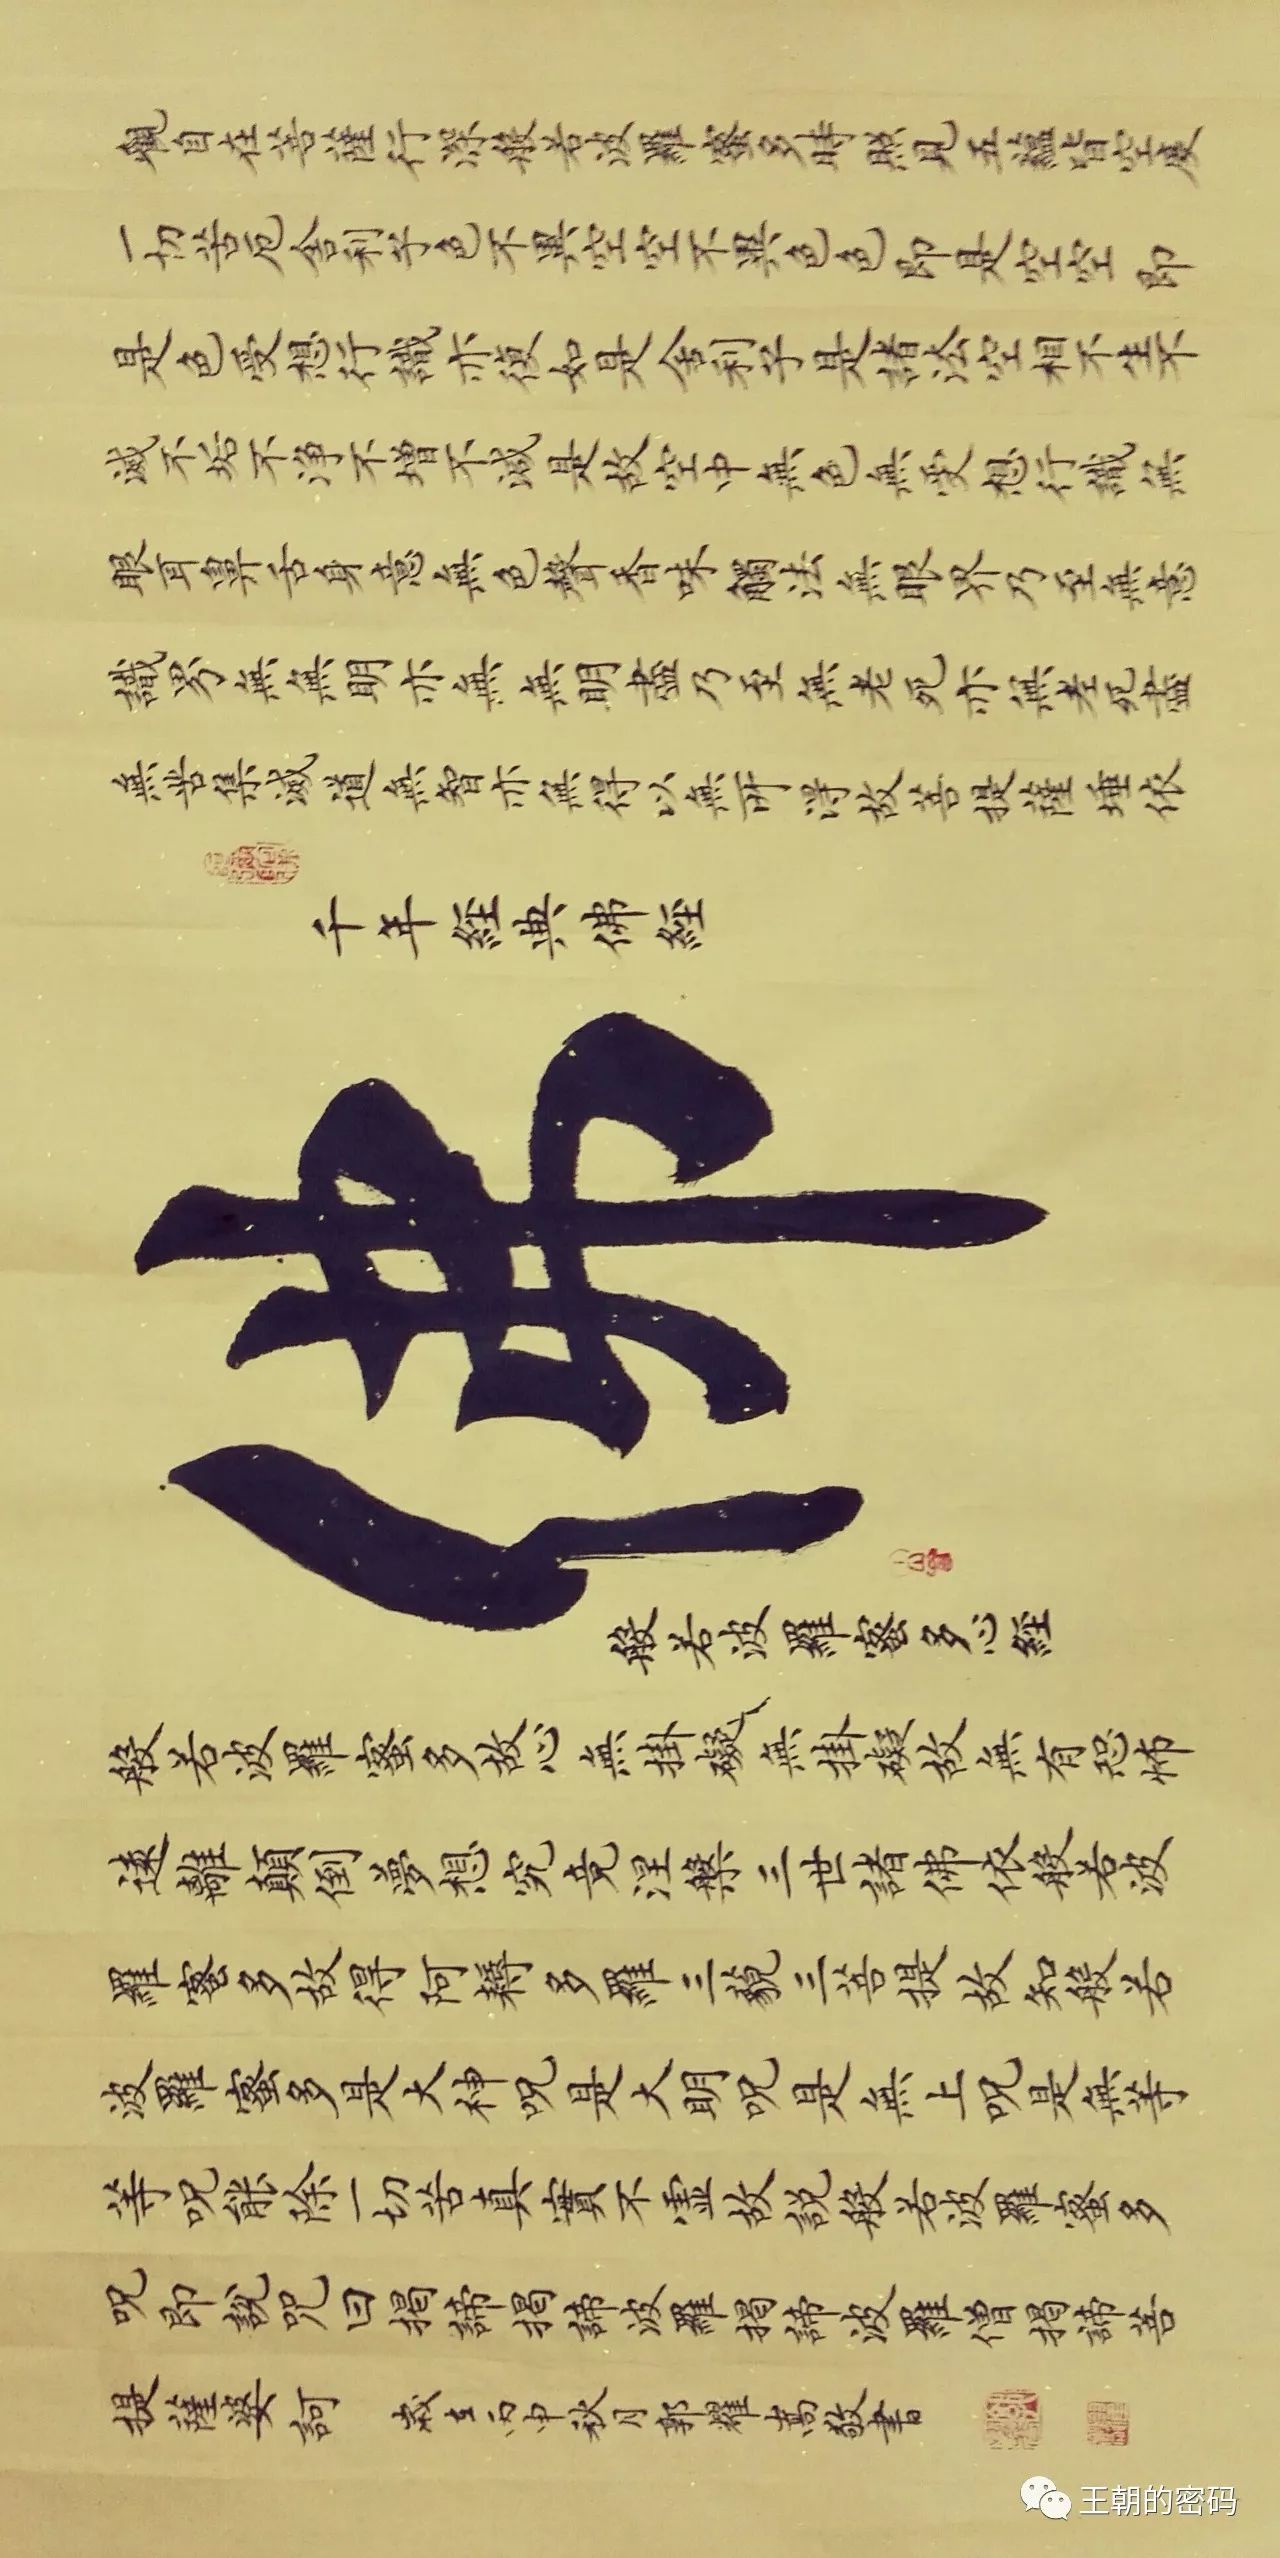 觀自在菩薩行深般若波羅蜜多時照見五蘊皆空度
一切苦厄舍利子色不異空空不異色色即是空空即
是色受想行識亦復如是舍利子是諸法空相不生不
滅不垢不淨不增不減是故空中無色無受想行識無
眼耳鼻舌身意無色聲香味觸法無眼界乃至無意
識界無無明亦無無明盡乃至無老死亦無老死盡
無苦集滅道無智亦無得以無所得故菩提薩埵依
千年經典佛經
佛
般若波羅蜜多心經
般若波羅蜜多故心無掛礙無掛礙故無有恐怖
遠離顛倒夢想究竟涅槃三世諸佛依般若波
羅蜜多故得阿耨多羅三藐三菩提故知般若
波羅蜜多是大神呪是大明呪是無上呪是無等
等呪能除一切苦真實不虛故說般若波羅蜜多
呪即說咒曰揭諦揭諦波羅揭諦波羅僧揭諦菩
提薩婆訶 歲在中秋月郭耀敬書
王朝的密码